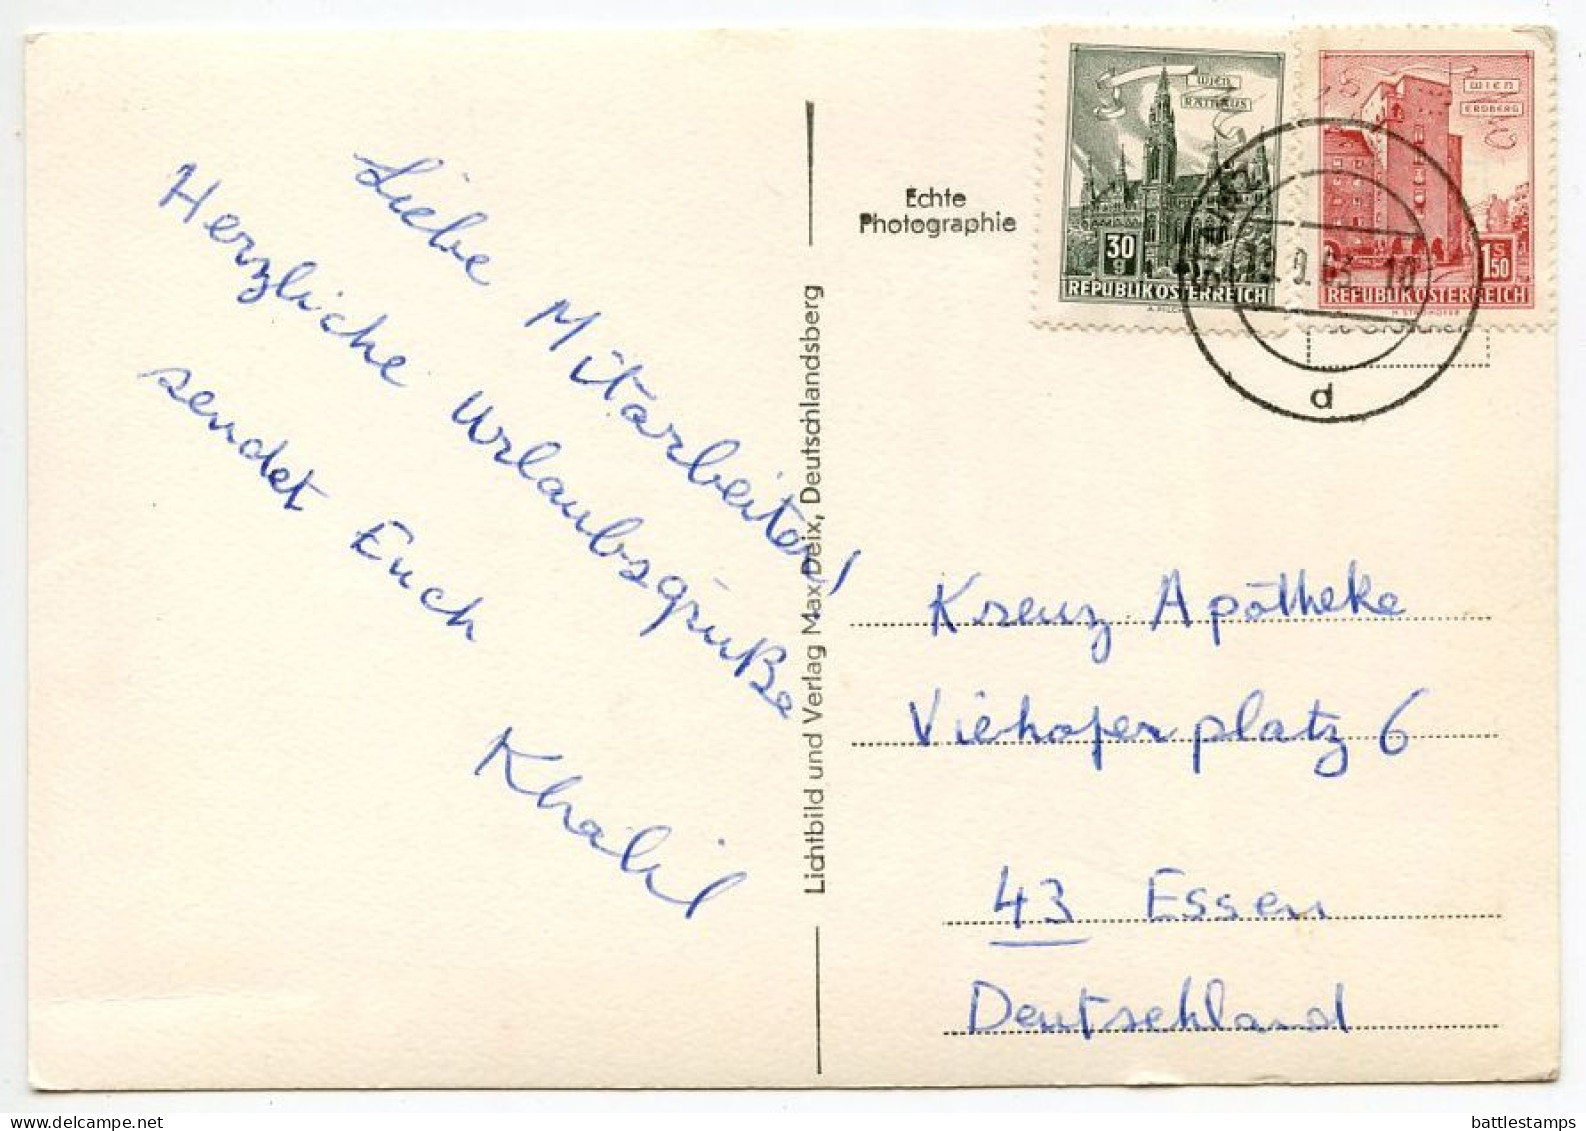 Liebe Mitarbeiter!
Herzliche Urlaubsgrüße
sendet Euch
Khalil
Lichtbild und Verlag Max Deix, Deutschlandsberg
Echte
Photographie
WIEN
RATHAUS
30
g
REPUBLIK ÖSTERREICH
WIEN
ERDBERG
1 S
50
REPUBLIK ÖSTERREICH
9.63. 10
d
Kreuz Apotheke
Viehoferplatz 6
43 Essen
Deutschland
battlestamps